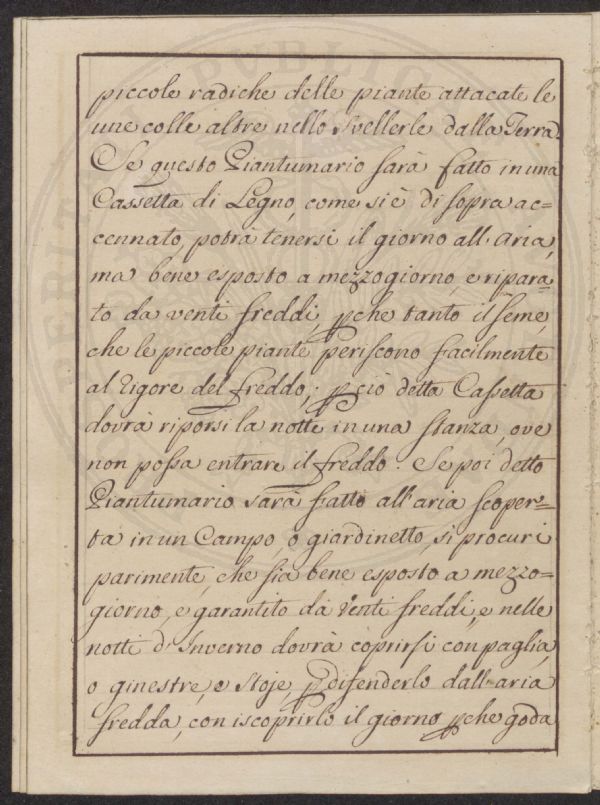 piccole radiche delle piante attacate le
une colle altre nello svellerle dalla Terra.
Se questo Piantumario sarà fatto in una
Cassetta di Legno, come si è di sopra ac=
cennato, potrà tenersi il giorno all'Aria,
ma bene esposto a mezzogiorno, e ripara=
to da venti freddi, pche tanto il seme,
che le piccole piante periscono facilmente
al rigore del freddo; p ciò detta Cassetta
dovrà riporsi la notte in una stanza, ove
non possa entrare il freddo. Se poi detto
Piantumario sarà fatto all'aria scoper=
ta in un Campo, o giardinetto, si procuri
parimente, che sia bene esposto a mezzo=
giorno, e garantito da Venti freddi, e nelle
notti d'Inverno dovrà coprirsi con paglia,
o ginestre, o stoje, p difenderlo dall'aria
fredda, con iscoprirlo il giorno pche goda